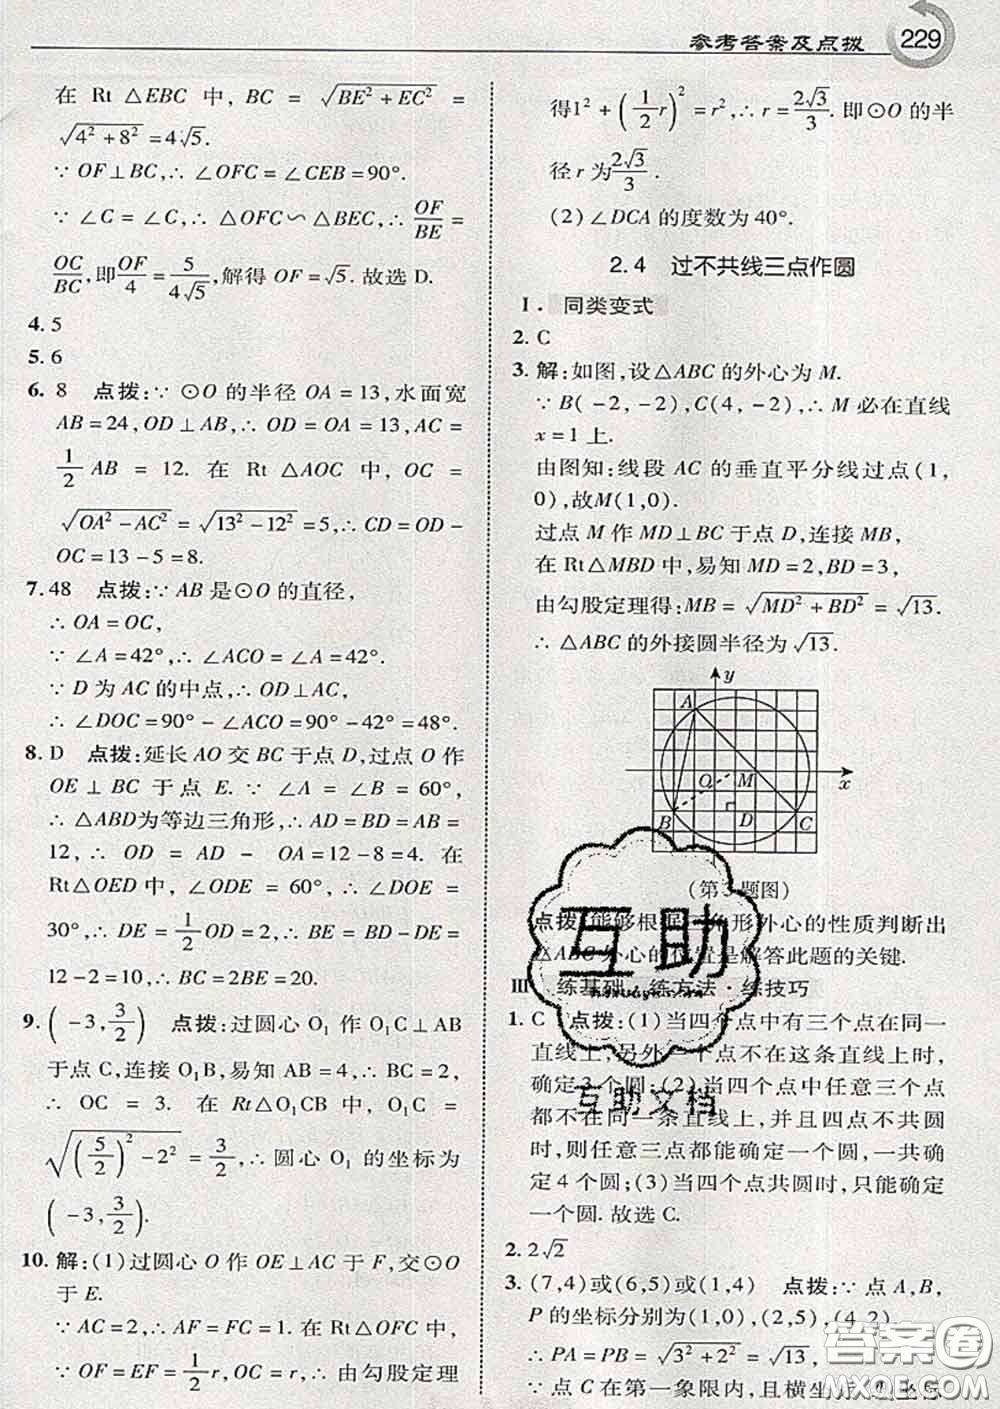 参考答案及点拨 229
在 Rt △EBC 中, BC = √(BE²+EC²) =
√(4²+8²) = 4√5.
∵ OF⊥BC,∴ ∠OFC = ∠CEB = 90°.
∵ ∠C = ∠C,∴ △OFC∽△BEC,∴ OF/BE =
OC/BC,即 OF/4 = 5/(4√5),解得 OF = √5. 故选 D.
4. 5
5. 6
6. 8 点拨:∵ ⊙O 的半径 OA = 13,水面宽
AB = 24, OD⊥AB,∴ OD = OA = 13, AC =
1/2 AB = 12. 在 Rt △AOC 中, OC =
√(OA²-AC²) = √(13²-12²) = 5,∴ CD = OD -
OC = 13 - 5 = 8.
7. 48 点拨:∵ AB 是⊙O 的直径,
∴ OA = OC,
∵ ∠A = 42°,∴ ∠ACO = ∠A = 42°.
∵ D 为 AC 的中点,∴ OD⊥AC,
∴ ∠DOC = 90° - ∠ACO = 90° - 42° = 48°.
8. D 点拨:延长 AO 交 BC 于点 D,过点 O 作
OE⊥BC 于点 E. ∵ ∠A = ∠B = 60°,
∴ △ABD为等边三角形,∴ AD = BD = AB =
12,∴ OD = AD - OA = 12 - 8 = 4. 在
Rt△OED 中, ∠ODE = 60°,∴ ∠DOE =
30°,∴ DE = 1/2 OD = 2,∴ BE = BD - DE =
12 - 2 = 10,∴ BC = 2BE = 20.
9. (-3, 3/2) 点拨:过圆心 O₁ 作 O₁C⊥AB
于点 C,连接 O₁B,易知 AB = 4,∴ BC = 2,
∴ OC = 3. 在 Rt△O₁CB 中, O₁C =
√((5/2)²-2²) = 3/2,∴ 圆心 O₁ 的坐标为
(-3, 3/2).
10. 解:(1)过圆心 O 作 OE⊥AC 于 F,交⊙O
于 E.
∵ AC = 2,∴ AF = FC = 1. 在 Rt△OFC 中,
∵ OF = EF = 1/2 r, OC = r,∴ 由勾股定理
得 1² + (1/2 r)² = r²,∴ r = 2√3/3. 即⊙O 的半
径 r 为 2√3/3.
(2)∠DCA 的度数为 40°.
2.4 过不共线三点作圆
Ⅰ. 同类变式
2. C
3. 解:如图,设△ABC 的外心为 M.
∵ B(-2,-2),C(4,-2),∴ M 必在直线
x = 1 上.
由图知:线段 AC 的垂直平分线过点(1,
0),故M(1,0).
过点 M 作 MD⊥BC 于点 D,连接 MB,
在 Rt△MBD 中,易知 MD = 2, BD = 3,
由勾股定理得:MB = √(MD²+BD²) = √13.
∴ △ABC 的外接圆半径为 √13.
y
A
O M x
B D C
(第3题图)
点拨:能够根据三角形外心的性质判断出
△ABC 外心的位置是解答此题的关键.
Ⅲ 练基础·练方法·练技巧
1. C 点拨:(1)当四个点中有三个点在同一
直线上,另外一个点不在这条直线上时,
确定3个圆;(2)当四个点中任意三个点
都不在同一条直线上,并且四点不共圆
时,则任意三点都能确定一个圆,一共确
定 4 个圆;(3)当四点共圆时,只能确定
一个圆. 故选 C.
2. 2√2
3. (7,4)或(6,5)或(1,4) 点拨:∵ 点 A,B,
P 的坐标分别为(1,0),(2,5),(4,2).
∴ PA = PB = √(3²+2²) = √13,
∵ 点 C 在第一象限内,且横坐标
互助
互助文档
答案圈
MXQE.COM